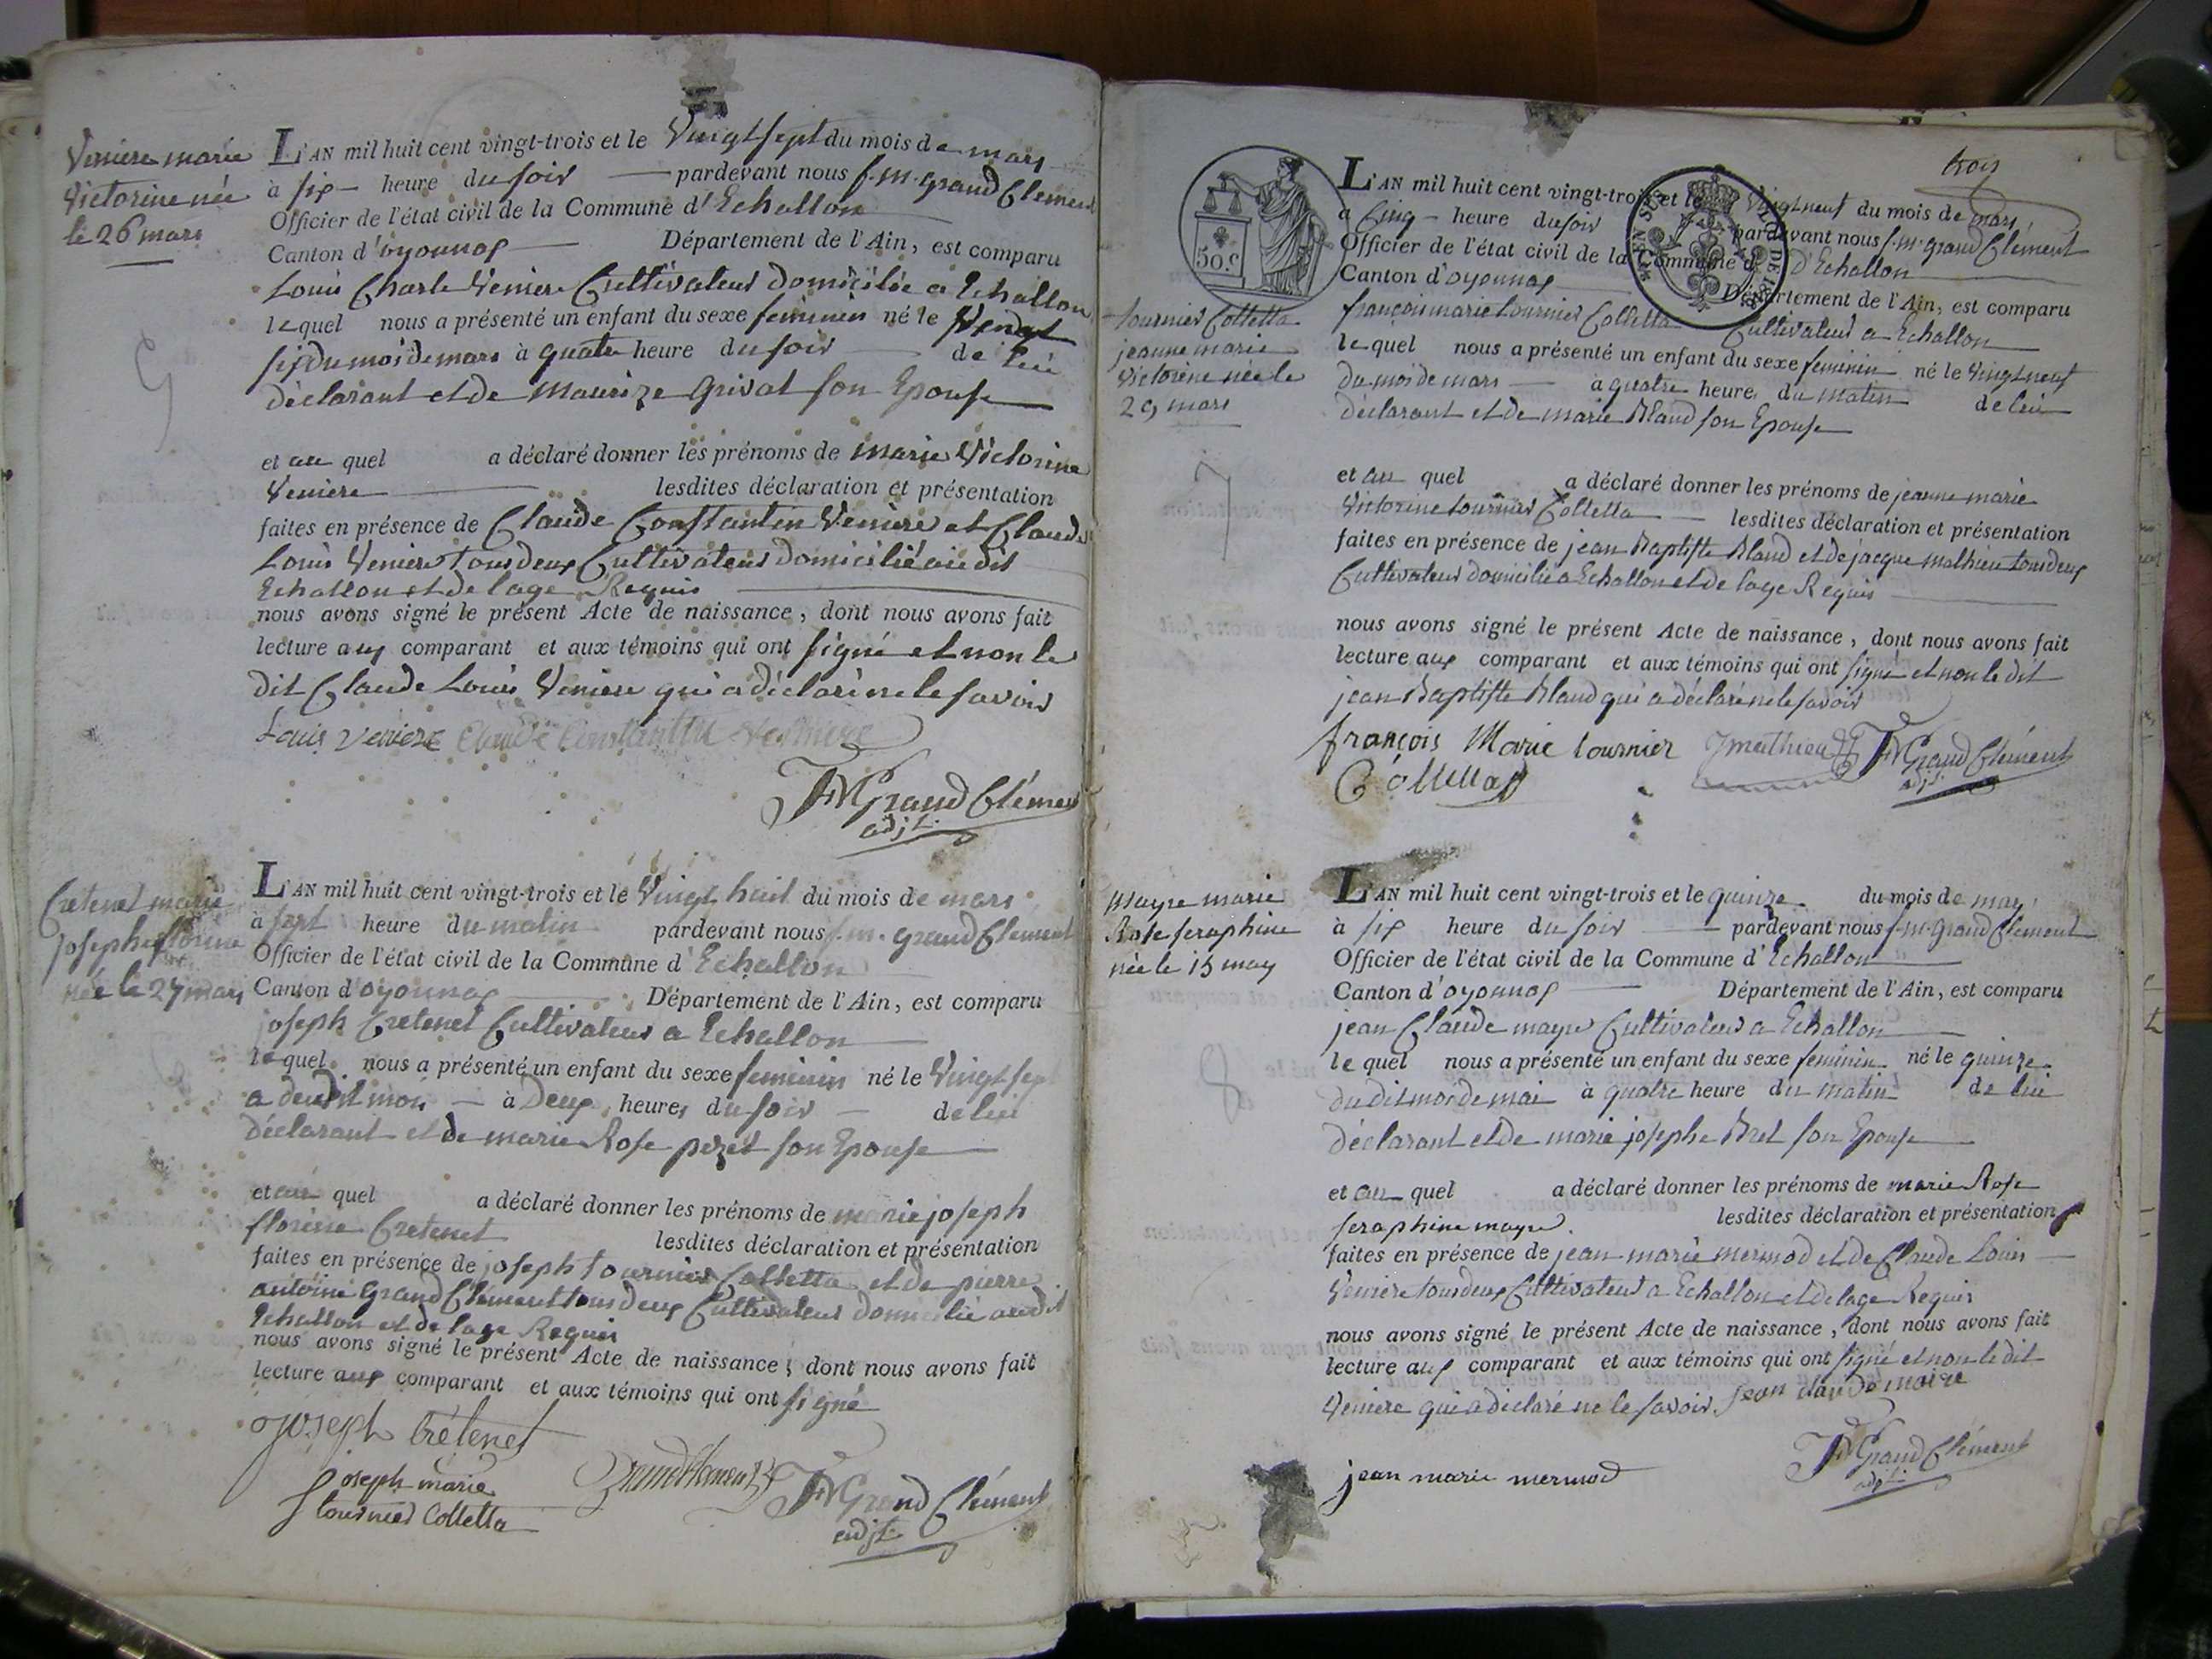 Veniere marie
Victorine née
le 26 mars
L'AN mil huit cent vingt-trois et le Vingt sept du mois de mars
à six heure du soir pardevant nous f. m. grand Clement
Officier de l'état civil de la Commune d'Echallon
Canton d'oyonnax Département de l'Ain, est comparu
Louis Charle Veniere Cultivateur domicilié a Echallon
lequel nous a présenté un enfant du sexe feminin né le Vengt
six du mois de mars à quatre heure du soir de lui
déclarant et de Maurize Grivat son Epouse
et au quel a déclaré donner les prénoms de marie Victorine
Veniere lesdites déclaration et présentation
faites en présence de Claude Constantin Veniere et Claude
Louis Veniere tous deux Cultivateurs domicilié au dit
Echallon et de lage Requis
nous avons signé le présent Acte de naissance, dont nous avons fait
lecture aux comparant et aux témoins qui ont signé et non le
dit Claude Louis Veniere qui a déclaré ne le savoir
Louis veniere Claude Constantin
FM Grand Clément
adjt.
5
Cretenet marie
joseph florine
née le 27 mars
L'AN mil huit cent vingt-trois et le Vingt huit du mois de mars
à sept heure du matin pardevant nous f. m. grand Clement
Officier de l'état civil de la Commune d'Echallon
Canton d'oyonnax Département de l'Ain, est comparu
joseph Cretenet Cultivateur a Echallon
lequel nous a présenté un enfant du sexe feminin né le Vingt sept
dudit mois à Deux heures du soir de lui
déclarant et de marie Rose perret son Epouse
et au quel a déclaré donner les prénoms de marie joseph
florine Cretenet lesdites déclaration et présentation
faites en présence de joseph tournier Colletta et de pierre
antoine Grand Clément tous deux Cultivateur domicilié audit
Echallon et de lage Requis
nous avons signé le présent Acte de naissance, dont nous avons fait
lecture aux comparant et aux témoins qui ont signé
joseph Crétenet
joseph marie
tournier Colletta
Grandclement
FM Grand Clément
adjt.
trois
50.c
tournier Colletta
jeanne marie
Victorine née le
29 mars
L'AN mil huit cent vingt-trois et le Vingt neuf du mois de mars
à Cinq heure du soir pardevant nous f. m. grand Clément
Officier de l'état civil de la Commune d'Echallon
Canton d'oyonnax Département de l'Ain, est comparu
françois marie tournier Colletta Cultivateur a Echallon
lequel nous a présenté un enfant du sexe feminin né le Vingt neuf
du mois de mars à quatre heure du matin de lui
déclarant et de marie Bland son Epouse
et au quel a déclaré donner les prénoms de jeanne marie
Victorine tournier Colletta lesdites déclaration et présentation
faites en présence de jean Baptiste Bland et de jacque mathieu tous deux
Cultivateur domicilié a Echallon et de lage Requis
nous avons signé le présent Acte de naissance, dont nous avons fait
lecture aux comparant et aux témoins qui ont signé et non le dit
jean Baptiste Bland qui a déclaré ne le savoir
françois Marie tournier
Colletta
J mathieu
FM Grand Clément
adjt.
7
mayre marie
Rose seraphine
née le 15 may
L'AN mil huit cent vingt-trois et le quinze du mois de may
à six heure du soir pardevant nous f. m. grand Clement
Officier de l'état civil de la Commune d'Echallon
Canton d'oyonnax Département de l'Ain, est comparu
jean Claude mayre Cultivateur a Echallon
lequel nous a présenté un enfant du sexe feminin né le quinze
du dit mois de mai à quatre heure du matin de lui
déclarant et de marie josephe Bret son Epouse
et au quel a déclaré donner les prénoms de marie Rose
seraphine mayre lesdites déclaration et présentation
faites en présence de jean marie mermod et de Claude Louis
Veniere tous deux Cultivateur a Echallon et de lage Requis
nous avons signé le présent Acte de naissance, dont nous avons fait
lecture aux comparant et aux témoins qui ont signé et non le dit
Veniere qui a déclaré ne le savoir jean claude maire
FM Grand Clément
adjt.
jean marie mermod
8